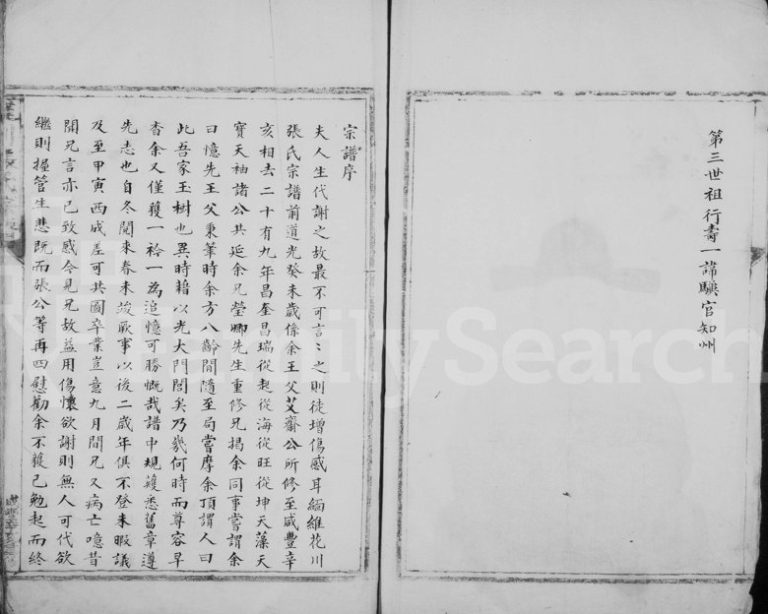 第三世祖行壽一諱騻官知州
宗譜序
夫人生代謝之故最不可言〻之則徒增傷感耳緬維花川
張氏宗譜前道光癸未歲係余王父艾齋公所修至咸豐辛
亥相去二十有九年昌奎昌瑞從起從海從旺從坤天藻天
寶天袖諸公共延余兄瑩卿先生重修兄揭余同事嘗謂余
曰憶先王父秉筆時余方八齡間隨至局嘗摩余頂謂人曰
此吾家玉樹也異時藉以光大門閭矣乃幾何時而尊容早
杳余又僅獲一衿一為追憶可勝慨哉譜中規模悉舊章遵
先志也自冬開來春末竣厥事以後二歲年俱不登未暇議
及至甲寅西成差可共圖卒業豈意九月間兄又病亡噫昔
聞兄言亦已致感今見兄故益用傷懷欲謝則無人可代欲
繼則握管生悲既而張公等再四慰勸余不獲已勉起而終
FamilySearch